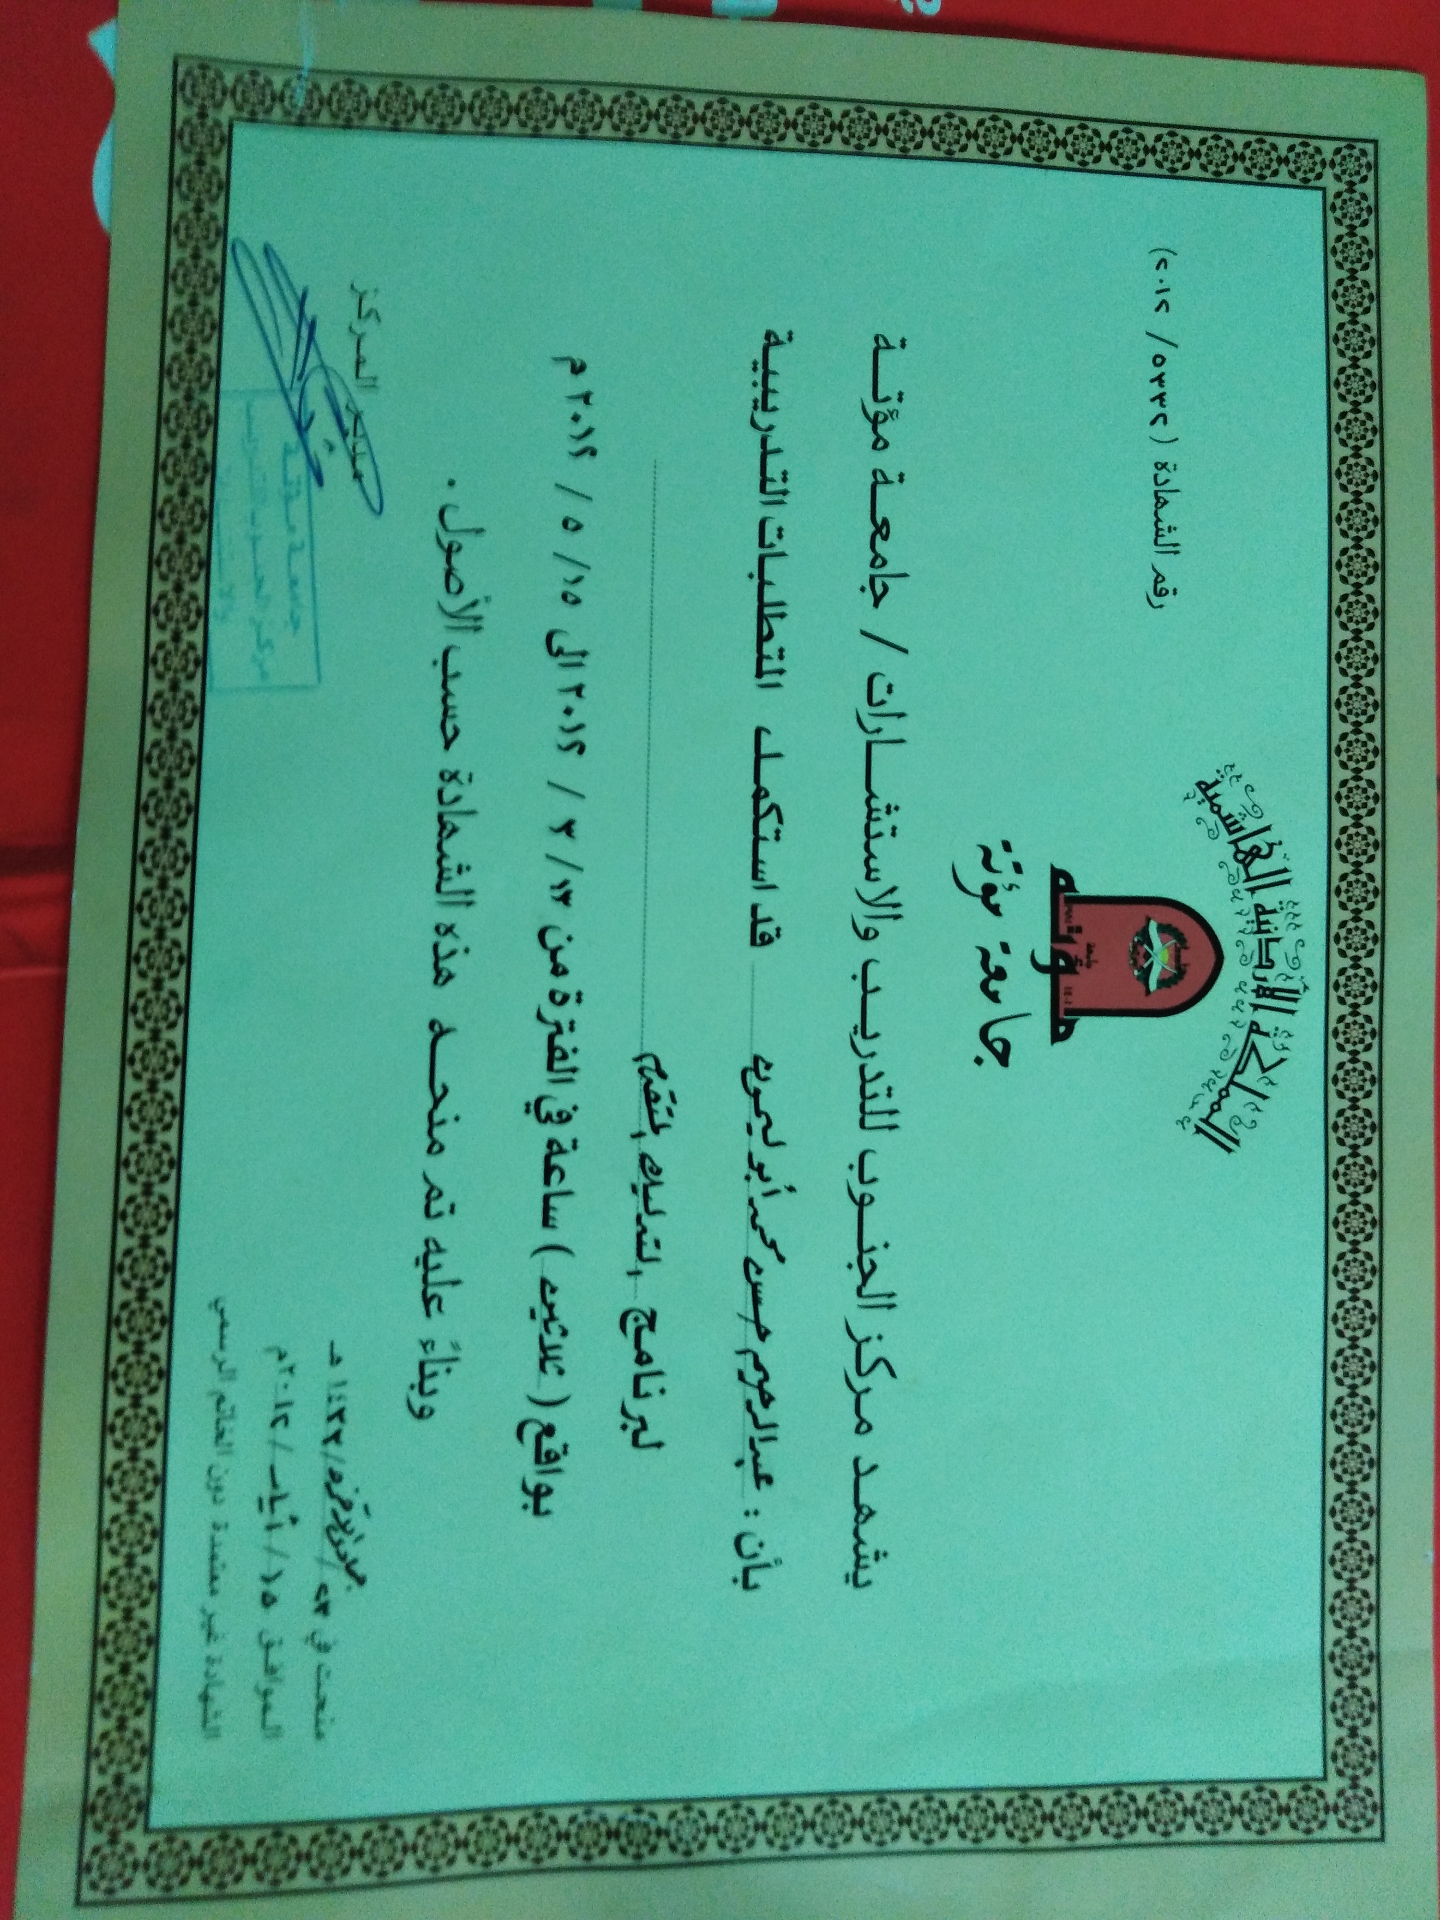 المملكة الأردنية الهاشمية
جامعة مؤتة
رقم الشهادة ( ٥٣٣٢ / ٢٠١٢)
جامعة مؤتة
يشهد مركز الجنوب للتدريب والاستشارات / جامعة مؤتة
بأن : عبدالرحيم حسن محمد أبو ليمون قد استكمل المتطلبات التدريبية
لبرنامج التدريب المتقدم
بواقع ( ثلاثين ) ساعة في الفترة من ١٣/ ٣ / ٢٠١٢ الى ١٥/ ٥ / ٢٠١٢ م
وبناءً عليه تم منحه هذه الشهادة حسب الأصول .
منحت في ٢٣ / /١٤٣٣ هـ
الموافق ١٥ / أيار / ٢٠١٢م
الشهادة غير معتمدة دون الخاتم الرسمي
مدير المركز
جامعة مؤتة
مركز الجنوب للتدريب